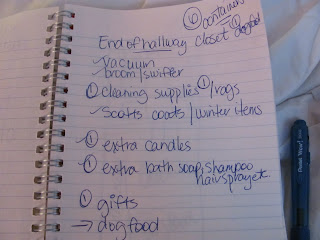 ⑥ containers
End of hallway closet ① dogfood
✓ vacuum
✓ broom/swiffer
① cleaning supplies ①/rags
✓ Scott's coats/winter items
① extra candles
① extra bath soap, shampoo
hairspray et.
① gifts
→ dogfood